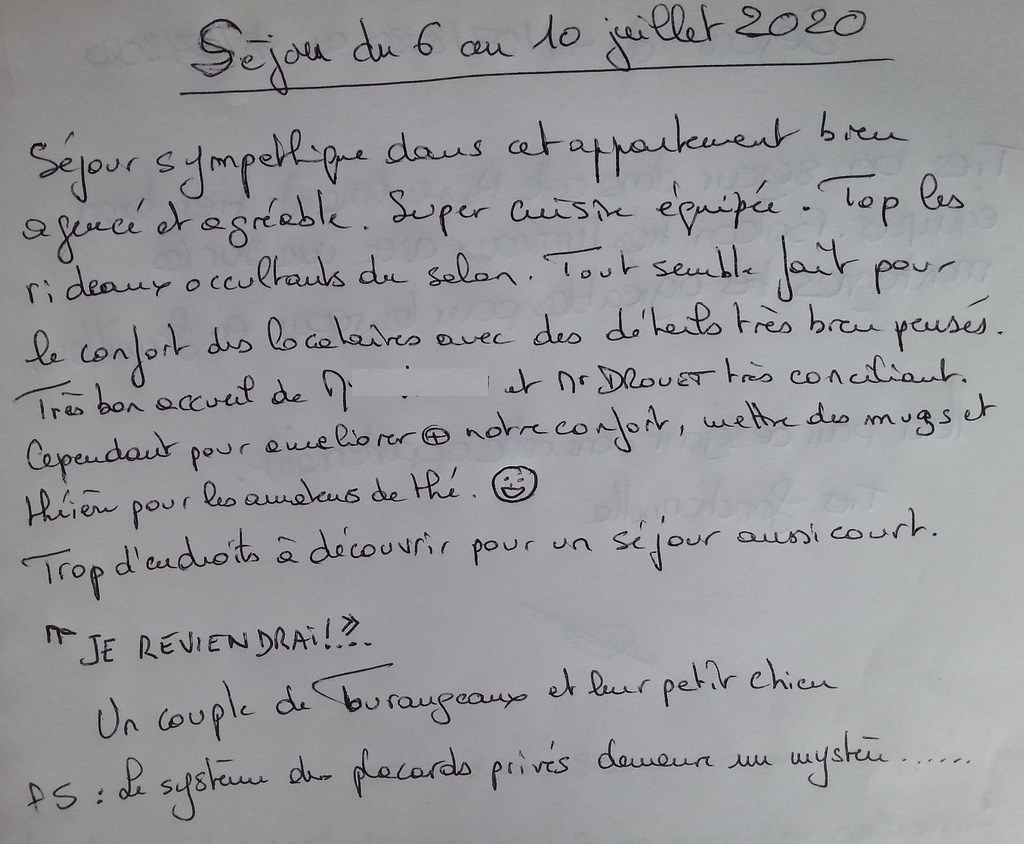 Séjour du 6 au 10 juillet 2020
Séjour sympathique dans cet appartement bien
agencé et agréable. Super cuisine équipée. Top les
rideaux occultants du salon. Tout semble fait pour
le confort des locataires avec des détails très bien pensés.
Très bon accueil de et Mr DROUET très conciliant.
Cependant pour améliorer ⊕ notre confort, mettre des mugs et
théière pour les amateurs de thé. 😀
Trop d'endroits à découvrir pour un séjour aussi court.
"JE REVIENDRAi!?..
Un couple de Tourangeaux et leur petit chien
PS : Le système des placards privés demeure un mystère ......